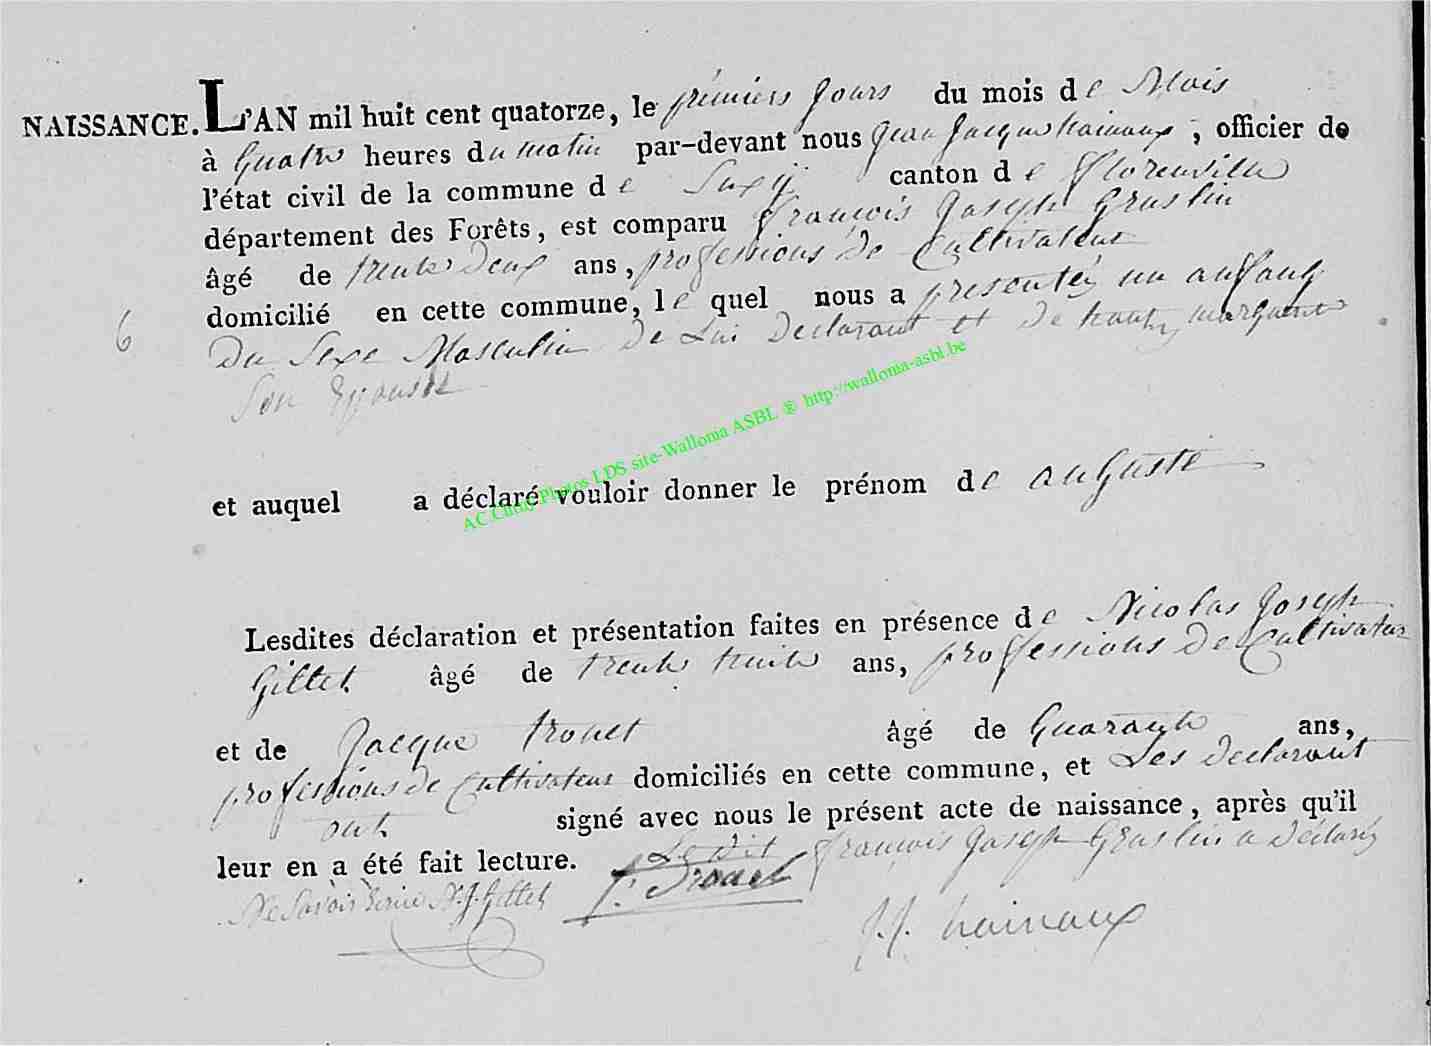 NAISSANCE. L'AN mil huit cent quatorze, le premiers Jours du mois de Mais
à Quatre heures du matin par-devant nous Jean Jacques hainaux, officier de
l'état civil de la commune de Suxÿ canton de Florenville
département des Forêts, est comparu François Joseph Graslin
âgé de trente Deux ans, professions de Cultivateur
domicilié en cette commune, le quel nous a presentéz un anfant
6
Du Sexe Masculin De Lui Declarant et De
Son Epouse
et auquel a déclaré vouloir donner le prénom de auguste
AC Photos LDS site-Wallonia ASBL ® http://wallonia-asbl.be
Lesdites déclaration et présentation faites en présence de Nicolas Joseph
Gillet âgé de trente huit ans, professions De Cultivateur
et de Jacque trouet âgé de Quarante ans,
professions de Cultivateur domiciliés en cette commune, et Les Declarant
ont signé avec nous le présent acte de naissance, après qu'il
leur en a été fait lecture. Le dit François Joseph Graslin a Déclaré
Ne Savoir Ecrire N. J. Gillet J. Drouet
J. J. hainaux